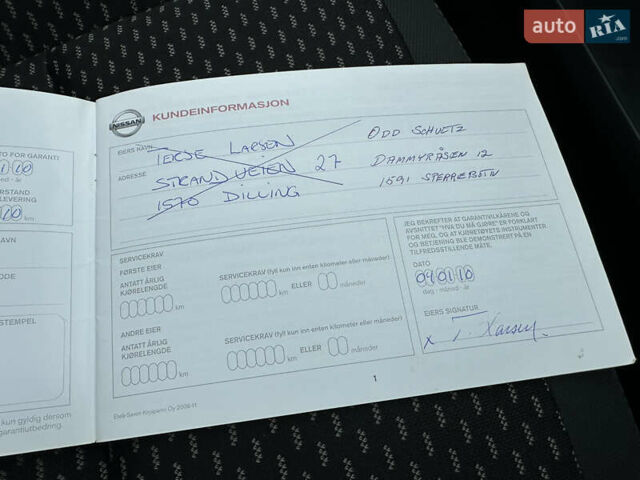 auto RIA .com
NISSAN
KUNDEINFORMASJON
EIERS NAVN
LARSEN
ODD SCHUETZ
ADRESSE
STRANDVEIEN 27
DAMMYRÅSEN 12
1570 DILLING
1591 SPERREBOTN
JEG BEKREFTER AT GARANTIVILKÅRENE OG
AVSNITTET "HVA DU MÅ GJØRE" ER FORKLART
FOR MEG, OG AT KJØRETØYETS INSTRUMENTER
OG BETJENING BLE DEMONSTRERT PÅ EN
TILFREDSSTILLENDE MÅTE.
DATO
040110
dag - måned - år
EIERS SIGNATUR
x T. Larsen
SERVICEKRAV
FØRSTE EIER
ANTATT ÅRLIG
KJØRELENGDE
km
SERVICEKRAV (fyll kun inn enten kilometer eller måneder)
km ELLER måneder
ANDRE EIER
ANTATT ÅRLIG
KJØRELENGDE
km
SERVICEKRAV (fyll kun inn enten kilometer eller måneder)
km ELLER måneder
1
Oy 2009-11
ATO FOR GARANTI
10
måned - år
RSTAND
LEVERING
10 km
AVN
ODE
STEMPEL
kun gyldig dersom
garantiutbedring.